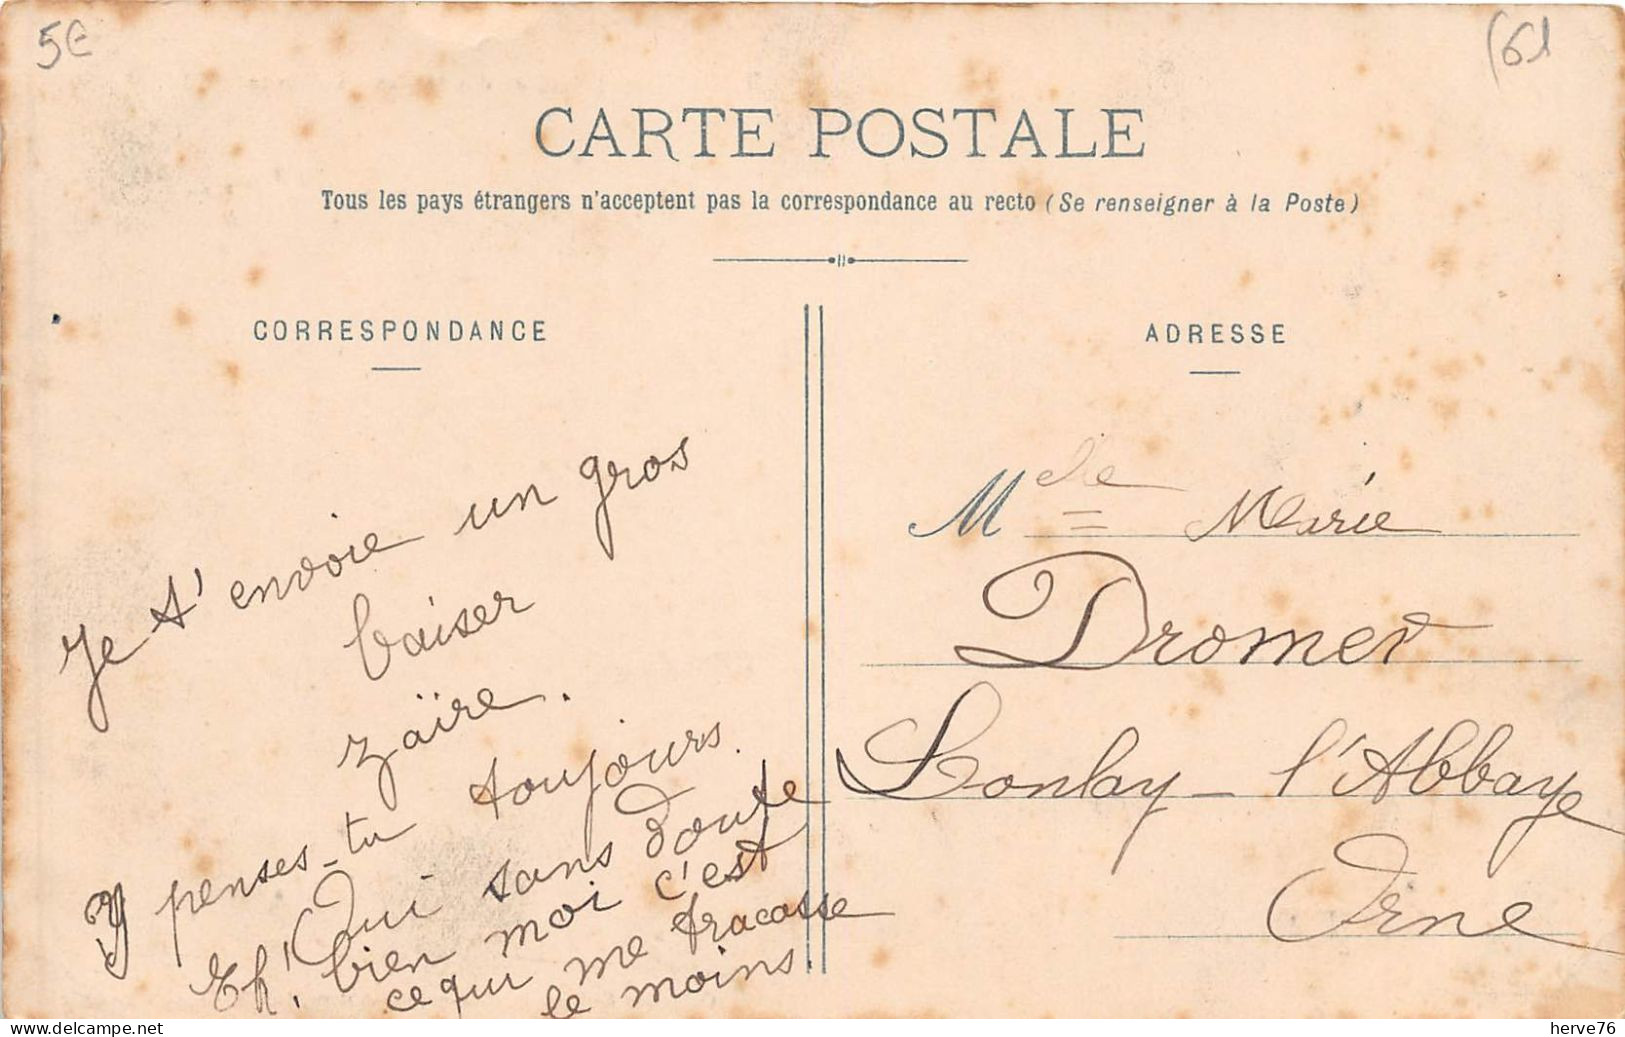 5€
(61
CARTE POSTALE
Tous les pays étrangers n'acceptent pas la correspondance au recto (Se renseigner à la Poste)
CORRESPONDANCE
Je t'envoie un gros
baiser
zaïre.
Y penses-tu toujours.
Oui sans doute
Eh! bien moi c'est
ce qui me tracasse
le moins.
ADRESSE
Mlle Marie
Dromer
Lonlay-l'Abbaye
Orne
delcampe.net
herve76